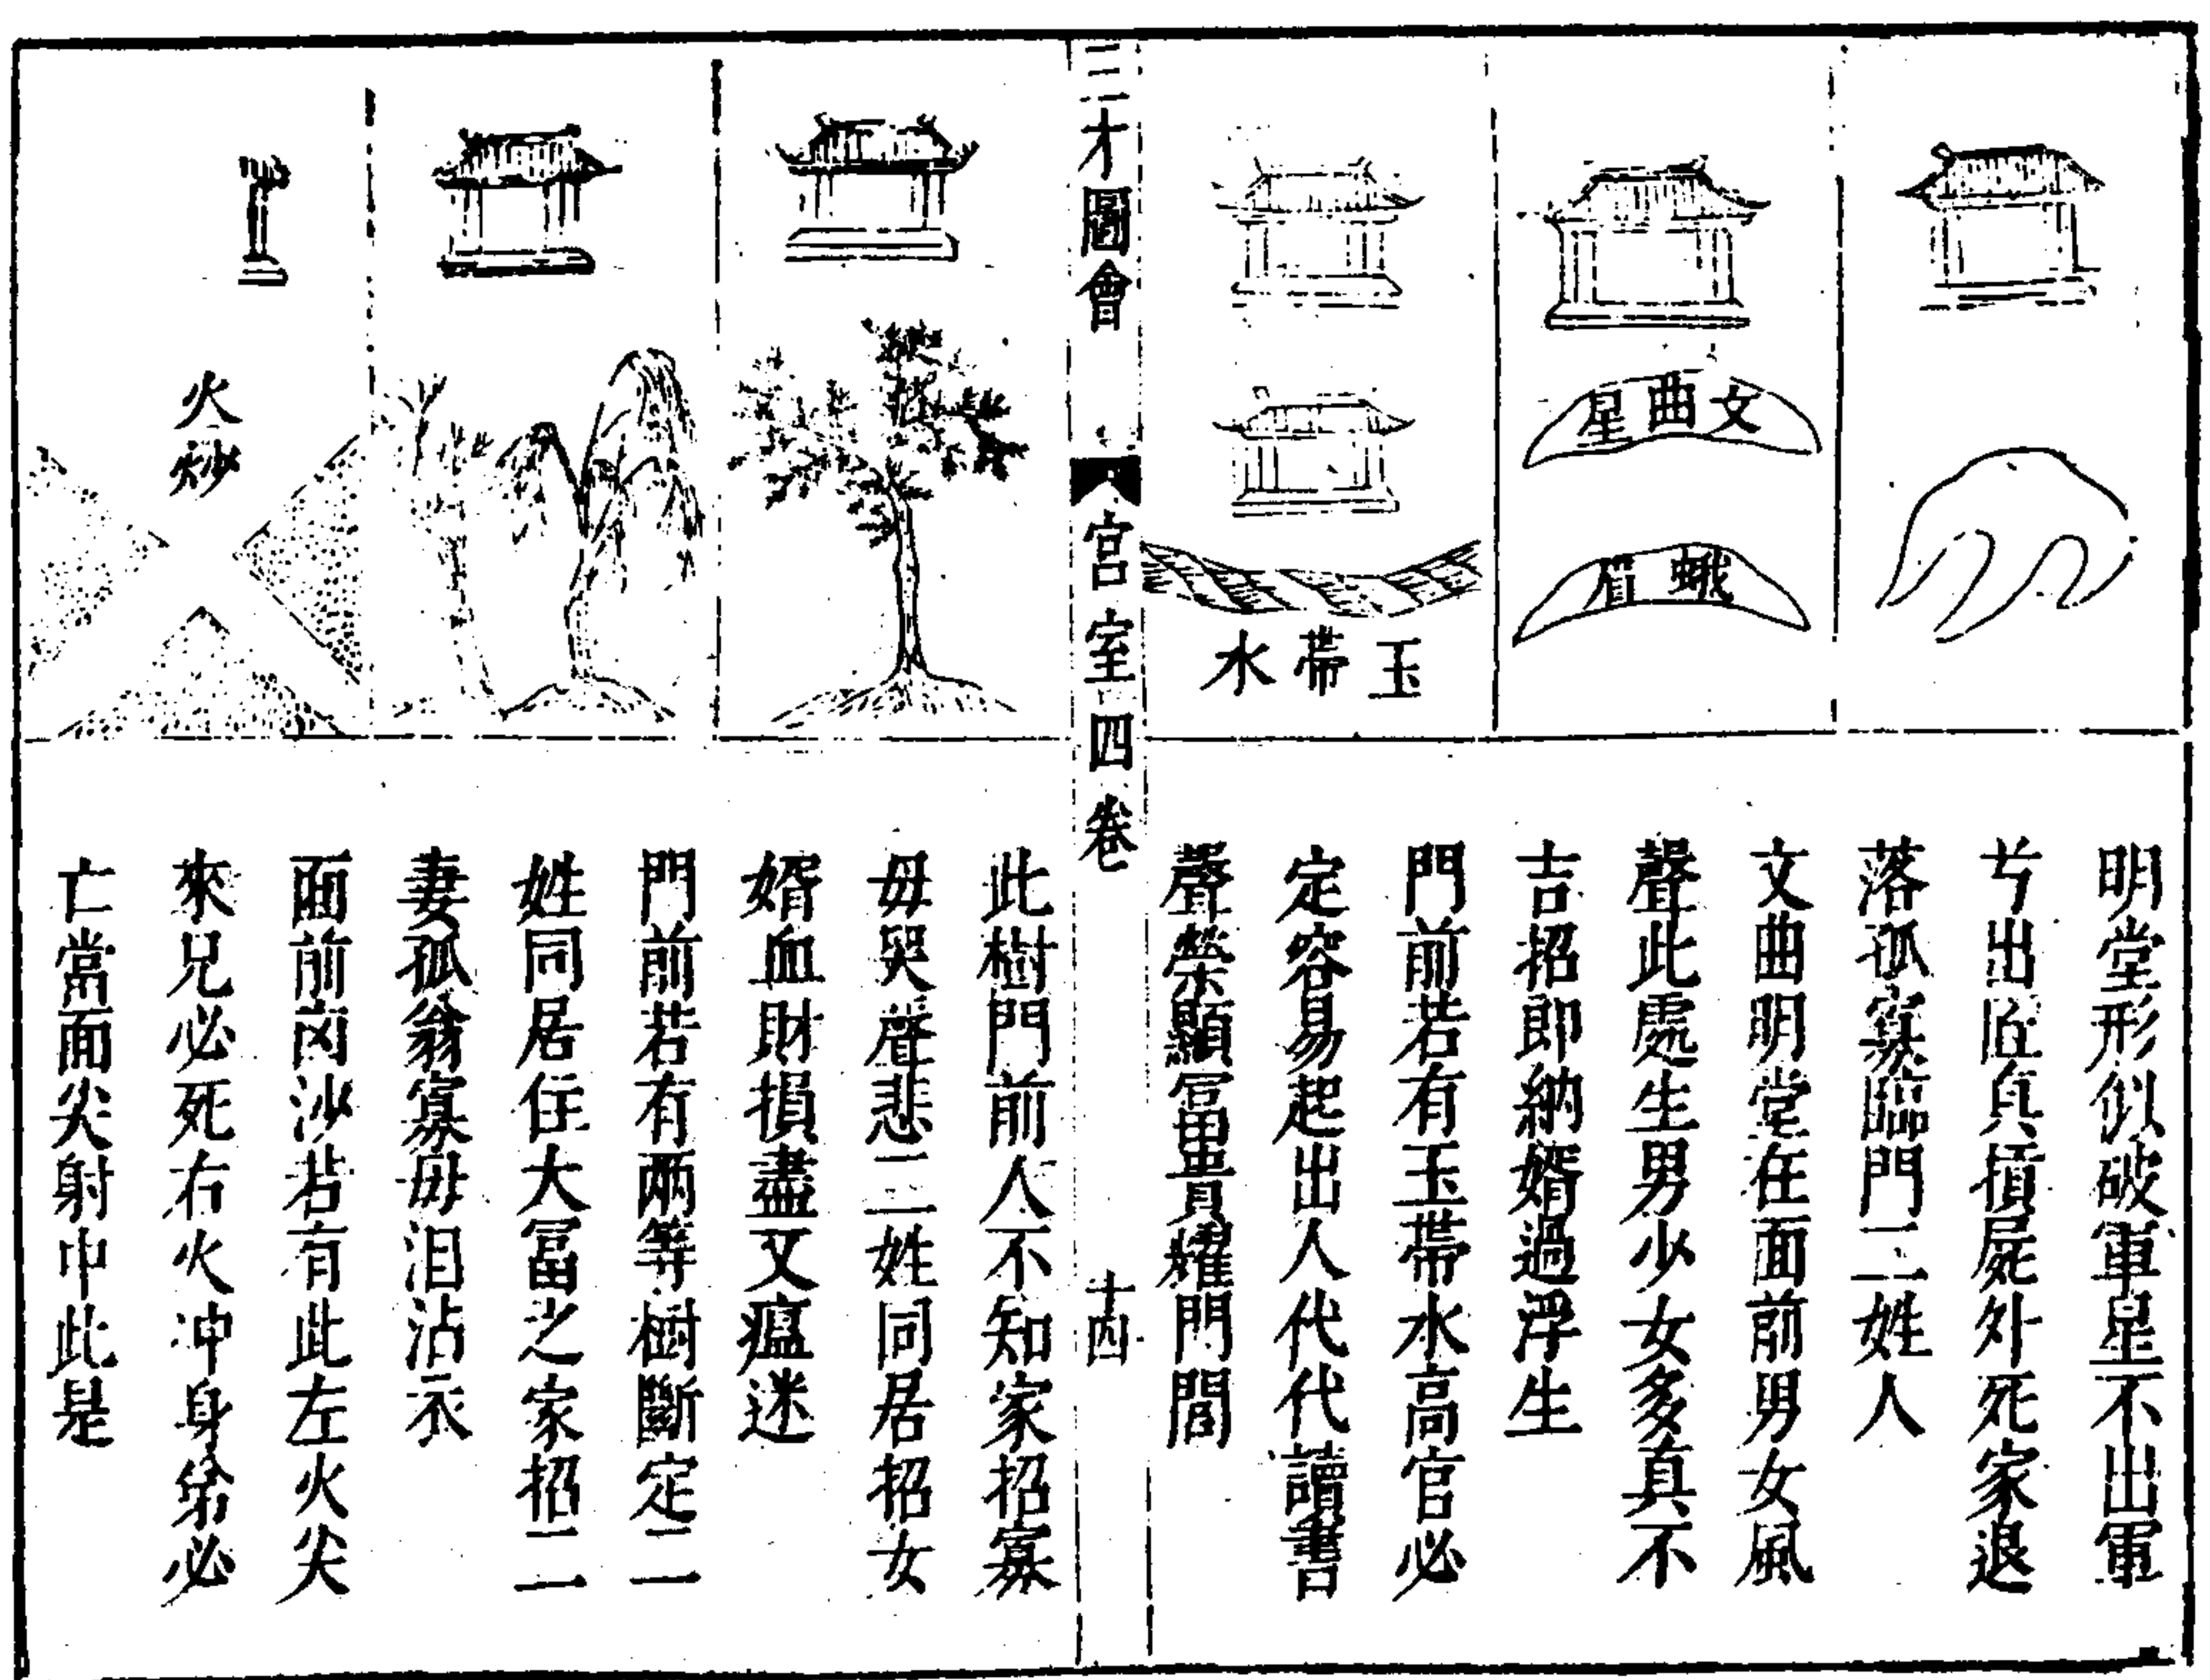 文曲星
蛾眉
玉帶水
明堂形似破軍星不出軍
兮出匠真損屍外死家退
落孤寡臨門二姓人
文曲明堂在面前男女風
聲此處生男少女多真不
吉招郎納婿過浮生
門前若有玉帶水高官必
定容易起出人代代讀書
聲榮顯冨貴耀門閭
三才圖會
宮室四卷
十四
火炒
此樹門前人不知家招寡
母哭聲悲二姓同居招女
婿血財損盡又瘟迷
門前若有兩等樹斷定二
姓同居住大冨之家招二
妻孤翁寡母泪沾衣
面前凶沙若有此左火尖
來兄必死右火冲身弟必
亡當面尖射中此是